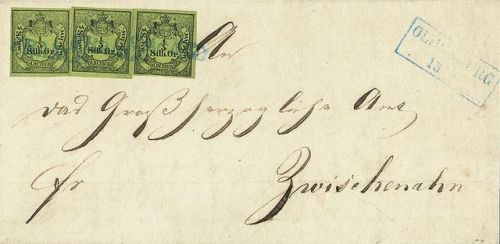 1/3 Silb.Gr. 1/3 Silb.Gr. 1/3 Silb.Gr.
An
OLDENBURG
das Großherzogliche Amt
fr
Zwischenahn